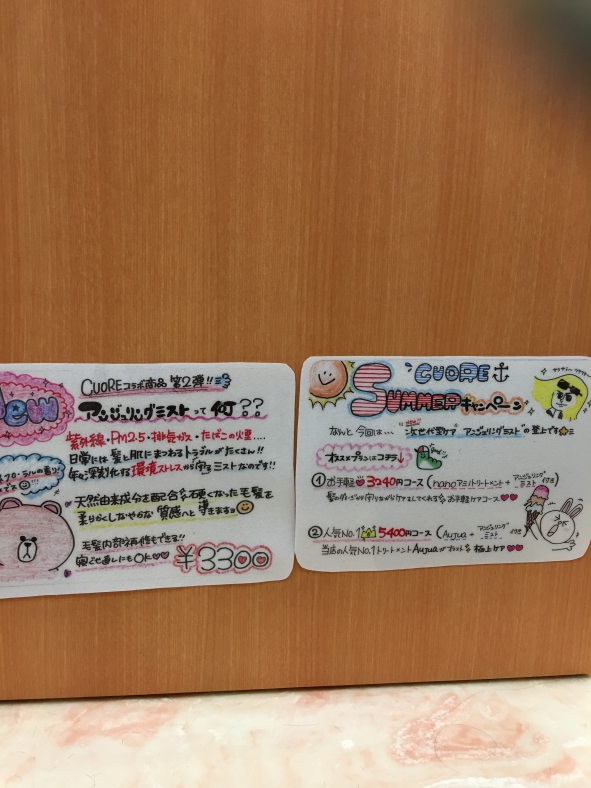 New
CUOREコラボ商品 第2弾!!
アンジュリングミストって何??
紫外線・PM2.5・排気ガス・たばこの火里....
日常には髪と肌にまつわるトラブルがたくさん!!
年々深刻化する環境ストレスから守るミストなのです!!
フローラルの香り!
天然由来成分を配合 硬くなった毛髪を
柔らかくしなやかな 質感へと導きます
毛髪内部補修もできる!!
寝ぐせ直しにもOK
¥3300
CUORE
SUMMERキャンペーン
なんと 今回は… "次世代型ケア アンジュリングミスト"の登上です
オススメプランはコチラ
①お手軽 3240円コース (nanoアミノトリートメント + アンジュリングミスト 付き)
髪のダメージから守りながらケアもしてくれる お手軽ケアコース
②人気No.1 5400円コース (Aujua + アンジュリングミスト 付き)
当店の人気No.1トリートメント Aujuaがプラス 極上ケア